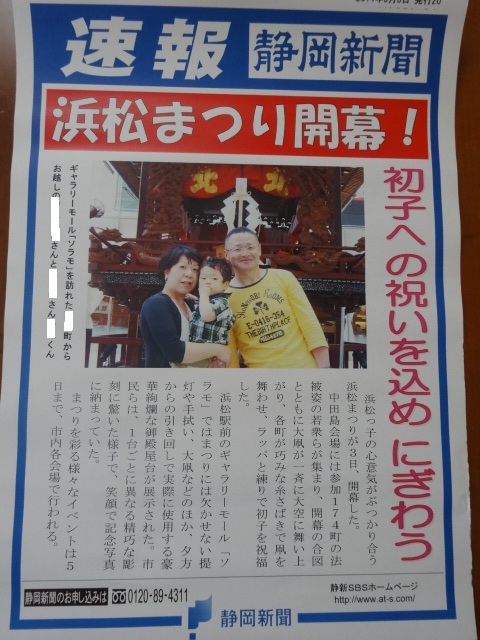 速報 静岡新聞
浜松まつり開幕！
初子への祝いを込め にぎわう
ギャラリーモール「ソラモ」を訪れた 町から
お越しの さんと さん くん
浜松っ子の心意気がぶつかり合う
浜松まつりが3日、開幕した。
中田島会場には参加174町の法
被姿の若衆らが集まり、開幕の合図
とともに大凧が一斉に大空に舞い上
がり、各町が巧みな糸さばきで凧を
舞わせ、ラッパと練りで初子を祝福
した。
浜松駅前のギャラリーモール「ソ
ラモ」ではまつりには欠かせない提
灯や手拭い、大凧などのほか、夕方
からの引き回しで実際に使用する豪
華絢爛な御殿屋台が展示された。市
民らは、1台ごとに異なる精巧な彫
刻に驚いた様子で、笑顔で記念写真
に納まっていた。
まつりを彩る様々なイベントは5
日まで、市内各会場で行われる。
静岡新聞のお申し込みは 0120-89-4311
静新SBSホームページ
http://www.at-s.com/
静岡新聞